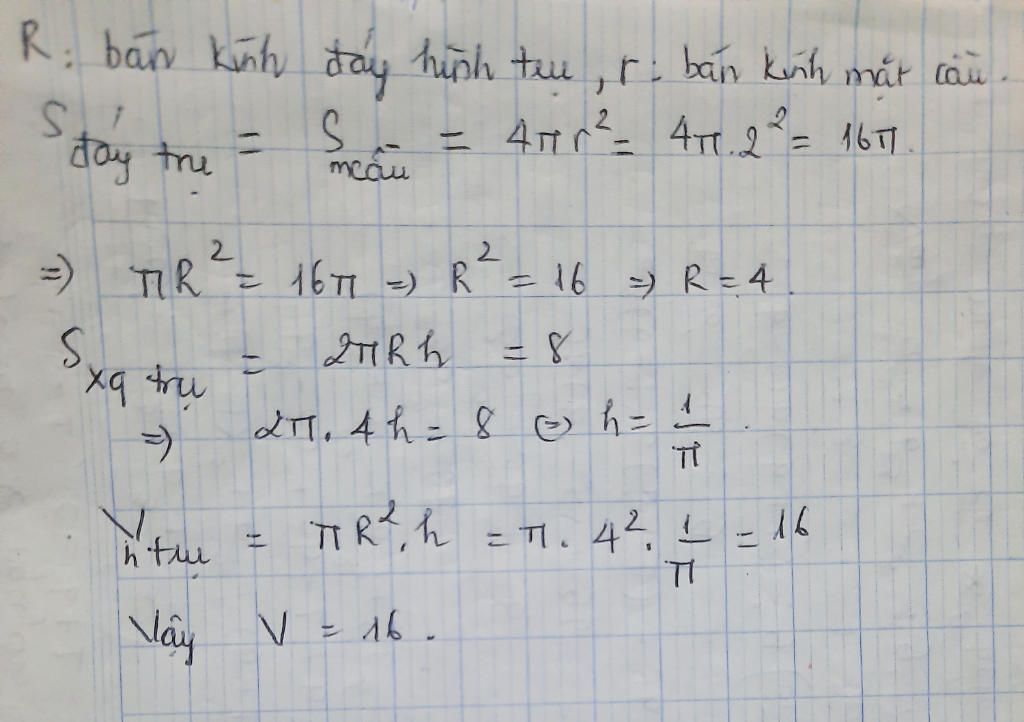 R: bán kính đáy hình trụ, r: bán kính mặt cầu.
S đáy trụ = S mcầu = 4πr² = 4π.2² = 16π.
=> πR² = 16π => R² = 16 => R = 4.
S xq trụ = 2πRh = 8
=> 2π.4h = 8 <=> h = 1/π.
V h trụ = πR².h = π.4².1/π = 16
Vậy V = 16.